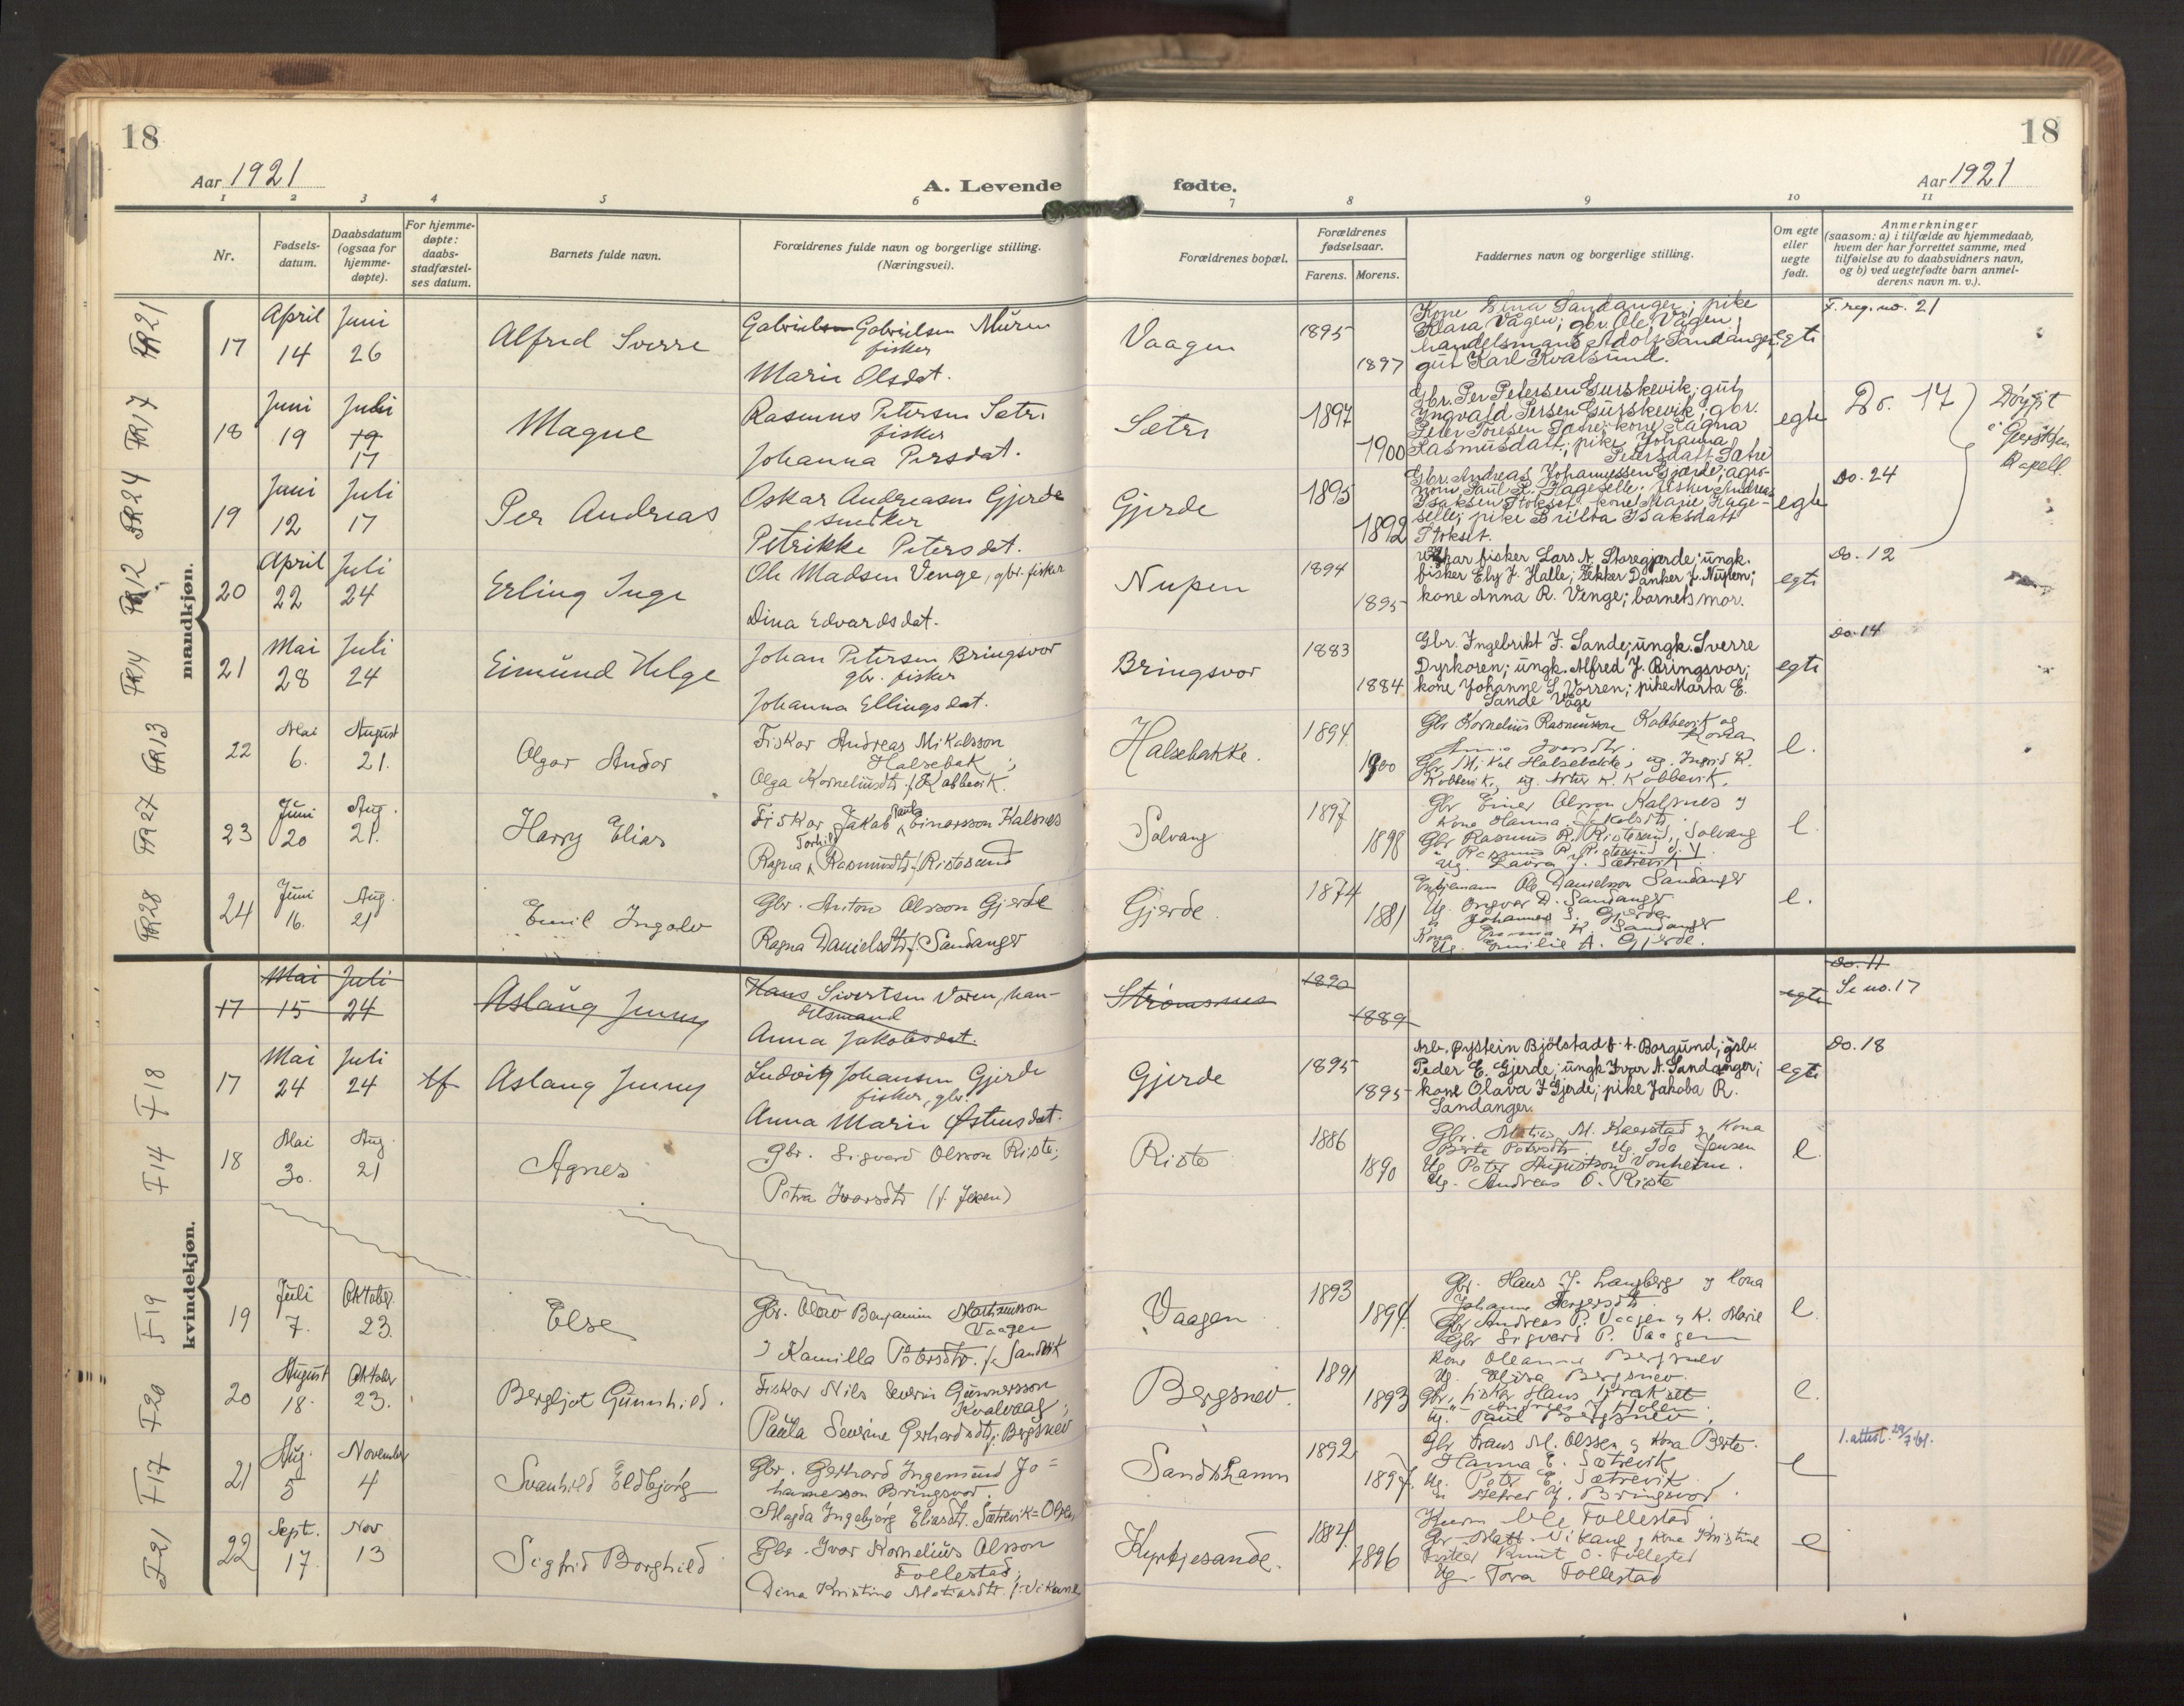 18
18
Aar 1921
A. Levende
fødte.
Aar 1921
1 2 3 4 5 6 7 8 9 10 11
Nr.
Fødsels-
datum.
Daabsdatum
(ogsaa for
hjemme-
døpte).
For hjemme-
døpte:
daabs-
stadfæstel-
ses datum.
Barnets fulde navn.
Forældrenes fulde navn og borgerlige stilling.
(Næringsvei).
Forældrenes bopæl.
Forældrenes
fødselsaar.
Farens. Morens.
Faddernes navn og borgerlige stilling.
Om egte
eller
uegte
født.
Anmerkninger
(saasom: a) i tilfælde av hjemmedaab,
hvem der har forrettet samme, med
tilføielse av to daabsvidners navn,
og b) ved uegtefødte barn anmel-
derens navn m. v.).
mandkjøn.
17
April
14
Juni
26
Alfred Sverre
Gabrielsen Muren
fisker
Marie Olsdat.
Vaagen
1895
1897
Kone Sandanger; pike
Klara Vågen; gbr. Ole Vågen;
handelsmand Adolf Sandanger;
gut Karl Kvalsund.
egte
F. reg. no. 21
18
Juni
19
Juli
19
17
Magne
Rasmus Petersen Sætre
fisker
Johanna Persdat.
Sætre
1897
1900
Gbr. Per Petersen Gurskevik; gut
Ingvald Persen Gurskevik; gbr.
kone Ragna
Rasmusdatt; pike Johanna
Petersdatt Sætre
egte
Do. 17
Døypt
i Gursken
Kapell.
19
Juni
12
Juli
17
Per Andreas
Oskar Andreasen Gjerde
snedker
Petrikke Petersdat.
Gjerde
1895
1892
Gbr. Andreas Johannessen Gjærde; agro-
nom Paul R. Hageselle; fisker Andreas
Isaksen Stokset; kone Marie Hage-
selle; pike Isaksdatt
Stokset.
egte
Do. 24
20
April
22
Juli
24
Erling Inge
Ole Madsen Venge, gbr. fisker
Dina Edvardsdat.
Nupen
1894
1895
fisker Lars A. Storegjerde; ungk.
fisker Ely J. Halle; J. Nupen;
kone Anna R. Venge; barnets mor.
egte
Do. 12
21
Mai
28
Juli
24
Eimund Helge
Johan Petersen Bringsvor
gbr. fisker
Johanna Ellingsdat.
Bringsvor
1883
1884
Gbr. Ingebrikt J. Sande; ungk. Sverre
Dyrkoren; ungk. Alfred J. Bringsvor;
kone Johanne S. Vorren; pike Marta E.
Sande Våge
egte
Do. 14
22
Mai
6.
August
21.
Olgar Andor
Fisker Andreas Mikalsson
Halsebak;
Olga Korneliusdtr. f. Kobbevik.
Halsebakke.
1894
1900
Gbr Kornelius Rasmusson Kobbevik og
Kona
Gbr. Mikal Halsebakke, ug. Ingrid K.
Kobbevik, ug. Artur K. Kobbevik.
e.
23
Juni
20
Aug.
21.
Harry Elias
Fisker Jakob Paul Einarsson Kalsnes
Torhild
Ragna Rasmusdtr. f. Ristesund
Solvang
1897
1898
Gbr Einer Olsson Kalsnes og
Kona Hanna
Gbr Rasmus R. Ristesund, Solvang
Ug. Laura J. Sætrevik
e.
24
Juni
16.
Aug.
21
Emil Ingolv
Gbr. Anton Olsson Gjerde
Ragna Danielsdtr. f. Sandanger
Gjerde
1874
1881
Ole Danielsson Sandanger
Ug. Ingvar D. Sandanger
Johannes S. Gjerde
Kona Sandanger
Ug. Emilie A. Gjerde.
e.
kvindekjøn.
17
Mai
15
Juli
24
Aslaug Jenny
Hans Sivertsen Voren, han-
delsmand
Anna Jakobsdat.
Strømsnes
1890
1889
egte
Do. 11
Se no. 17
17
Mai
24
Juli
24
tf
Aslaug Jenny
Ludvig Johansen Gjerde
fisker, gbr.
Anna Marie Østensdat.
Gjerde
1895
1895
Arb. Øystein Bjölstad f. t. Borgund; gsb.
Peder E. Gjerde; ungk Ivar A. Sandanger;
kone Olava J Gjerde; pike Jakoba R.
Sandanger.
egte
Do. 18
18
Mai
30.
Aug.
21
Agnes
Gbr. Sigvard Olsson Riste;
Petra Ivarsdtr
Riste
1886
1890
Gbr. Matias M. Kaarstad og Kona
Berte Petersdtr. Ug. Ida Jensen
Ug. Peter Augustson Vonheim.
Ug. Andreas O. Riste
e.
19
Juli
7.
Oktober.
23.
Else
Gbr. Olav Benjamin Mathiasson
Vaagen
Kamilla Petersdtr. f. Sandvik
Vaagen
1893
1894
Gbr. Hans J. Langberg og Kona
Johanne
Gbr Andreas P. Vaagen og K. Marie
Gbr Sigvard P. Vaagen
e.
20
August
18.
Oktober
23.
Bergljot Gunnhild.
Fisker Nils Severin Gunnersson
Kvalvaag;
Paula Severine Gerhardsdtr. f. Bergsnev
Bergsnev.
1891
1893
Kone Oleanna Bergsnev
Ug. Bergsnev.
Gbr. fisker Hans
Ug. Paul Bergsnev.
e.
21
Aug.
5
November
4
Svanhild Eldbjørg
Gbr. Gerhard Ingemund Jo=
hannesson Bringsvor.
Magda Ingebjørg Eliasdtr. Sætrevik=
Sandshamn
1892
1897.
Gbr Frans M. Olssen og Kona Berte.
Hanna E. Sætrevik
Ug. Peter E. Sætrevik
" Alfred J. Bringsvor.
e
1. attest. 29/7-61.
22
Sept.
17.
Nov
13
Sigfrid Borghild
Gbr. Ivar Kornelius Olsson
Follestad;
Dina Kristine Matiasdtr. f. Vikane
Kyrkjesande.
1884
1896
Ole Follestad.
Gbr. Matt. Vikane og Kone Kristine
Fisker Knut O. Follestad
Ug. Tora Follestad
e
FR 21
FR 17
FR 24
FR 12
FR 14
FR 13
FR 27
FR 28
F 18
F 14
F 19
F 20
F 17
F 21